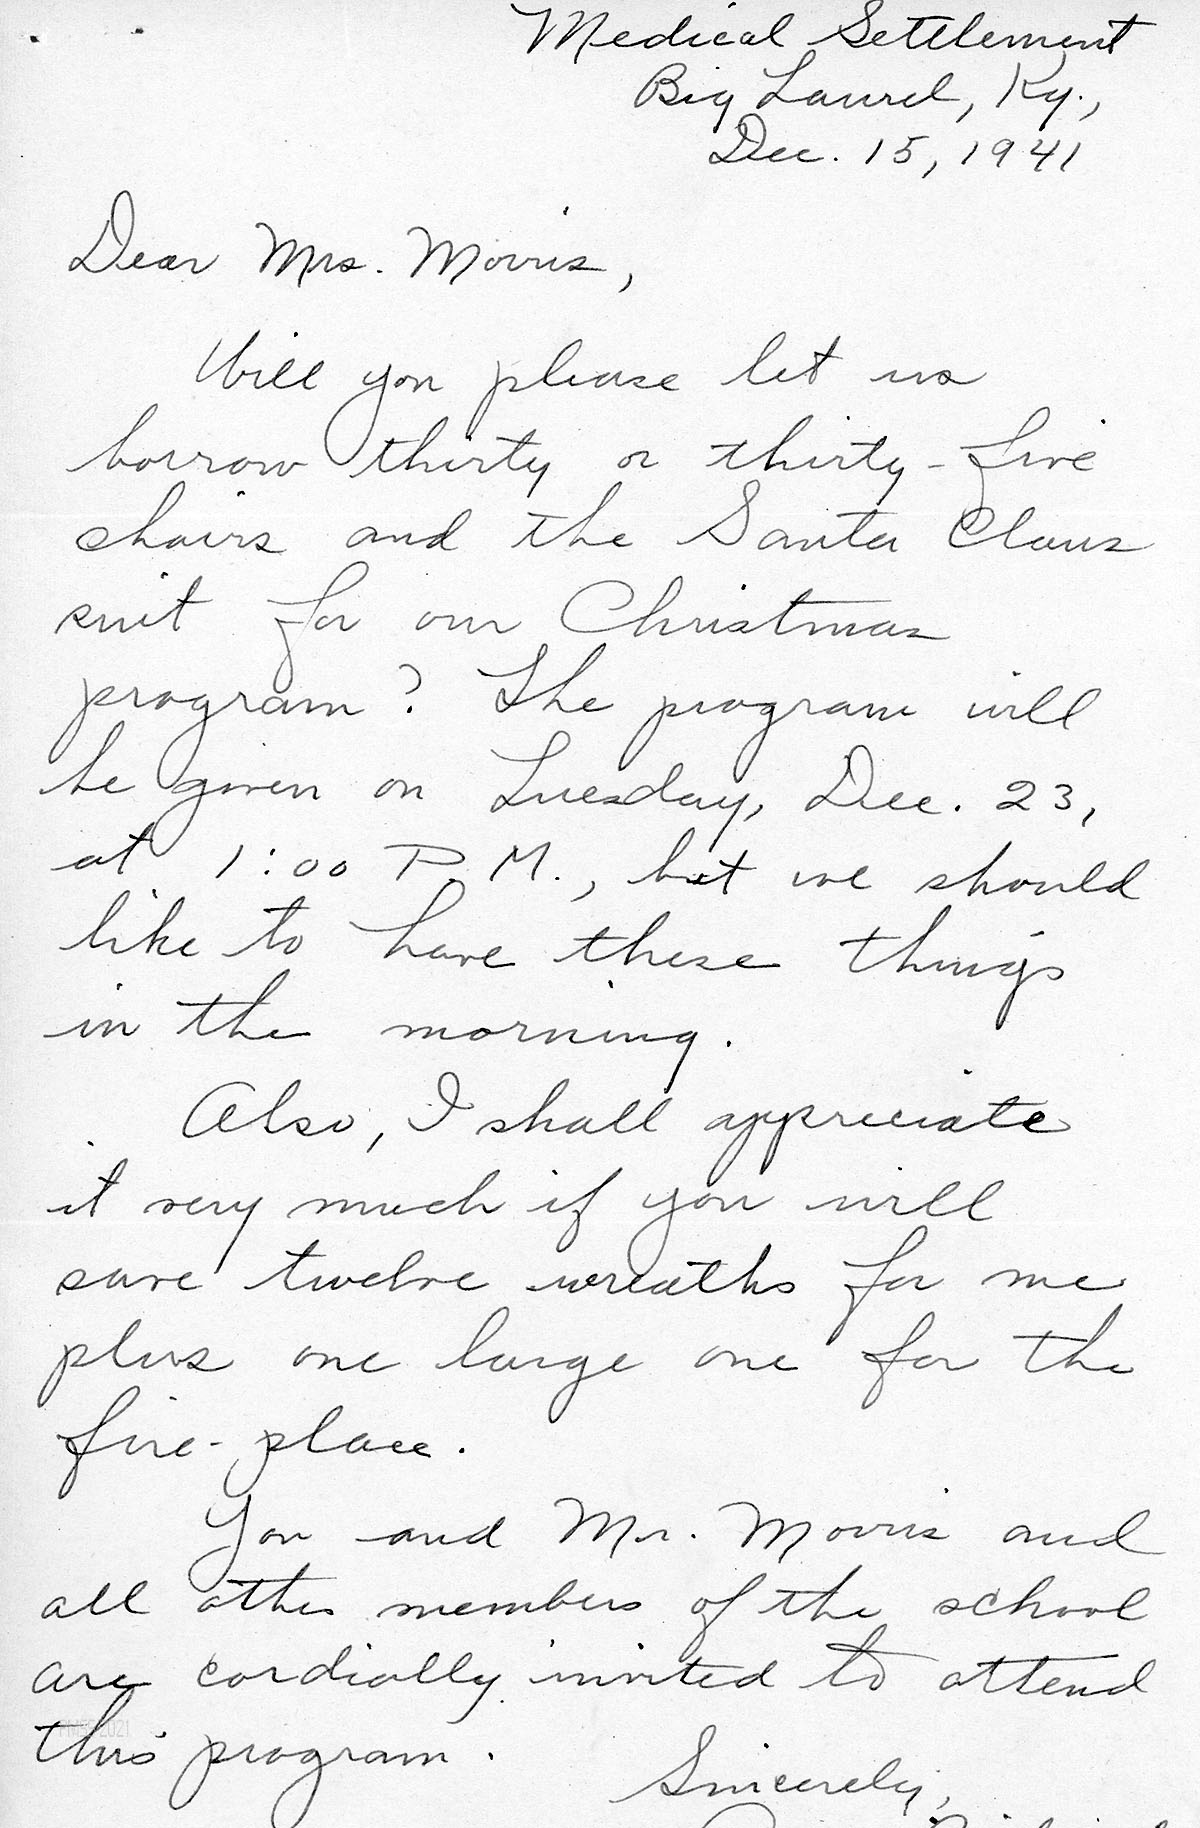 Medical Settlement
Big Laurel, Ky.,
Dec. 15, 1941
Dear Mrs. Morris,
Will you please let us
borrow thirty or thirty-five
chairs and the Santa Claus
suit for our Christmas
program? The program will
be given on Tuesday, Dec. 23,
at 1:00 P.M., but we should
like to have these things
in the morning.
Also, I shall appreciate
it very much if you will
save twelve wreaths for me
plus one large one for the
fire-place.
You and Mr. Morris and
all other members of the school
are cordially invited to attend
this program.
Sincerely,